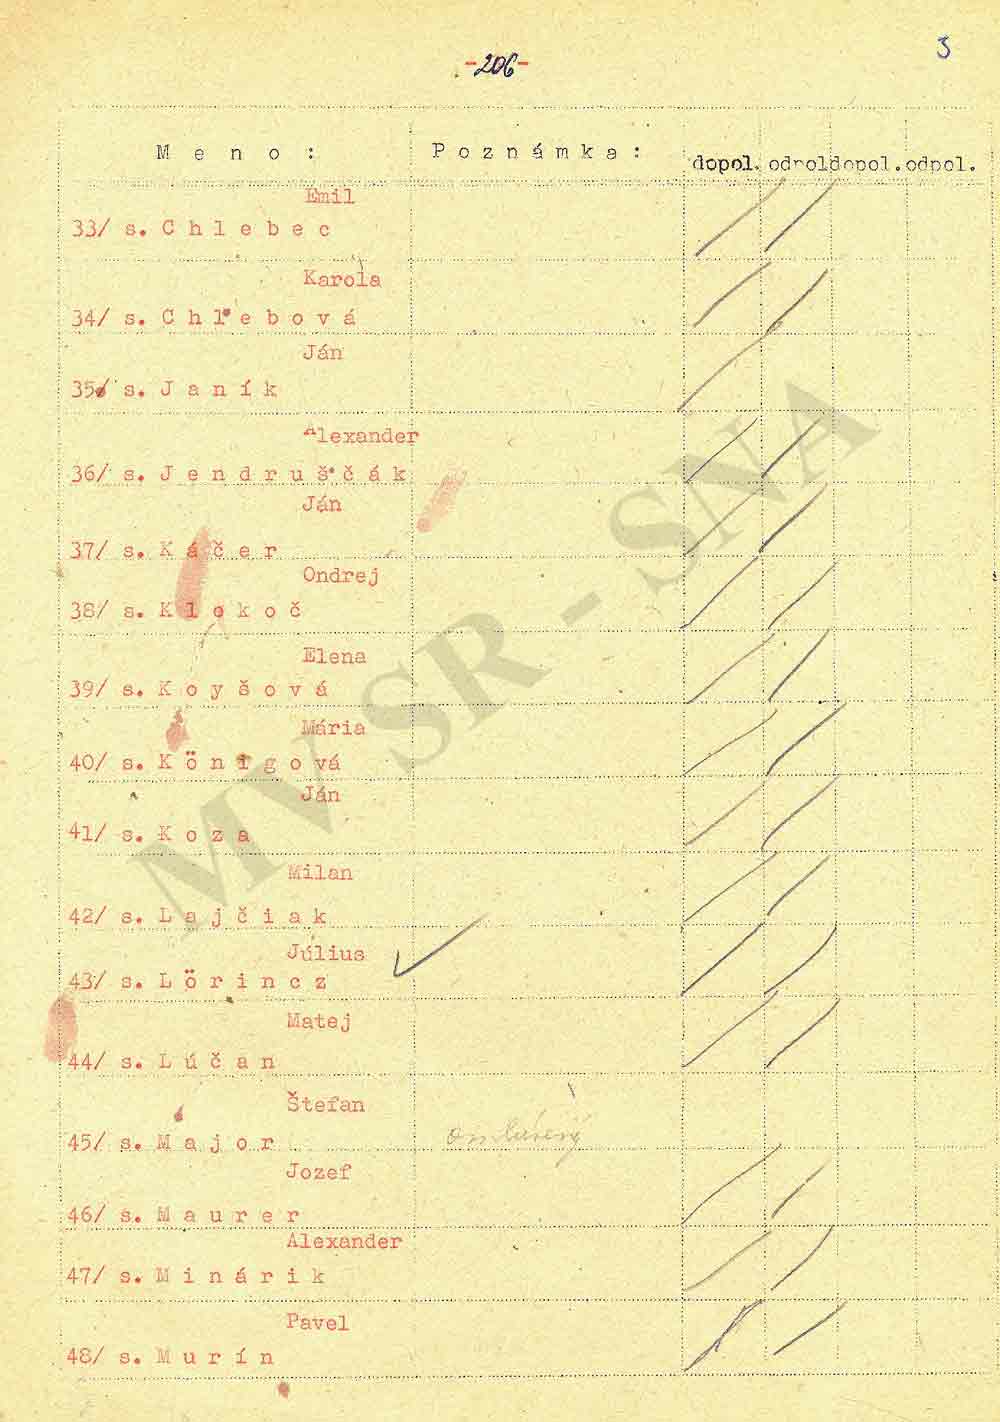 -206-
3
Meno: Poznámka: dopol. odpol dopol. odpol.
Emil
33/ s. Chlebec
Karola
34/ s. Chlebová
Ján
35/ s. Janík
Alexander
36/ s. Jendruščák
Ján
37/ s. Káčer
Ondrej
38/ s. Klokoč
Elena
39/ s. Koyšová
Mária
40/ s. Königová
Ján
41/ s. Koza
Milan
42/ s. Lajčiak
Július
43/ s. Lörincz
Matej
44/ s. Lúčan
Štefan
45/ s. Major
Jozef
46/ s. Maurer
Alexander
47/ s. Minárik
Pavel
48/ s. Murín
MV SR - SNA